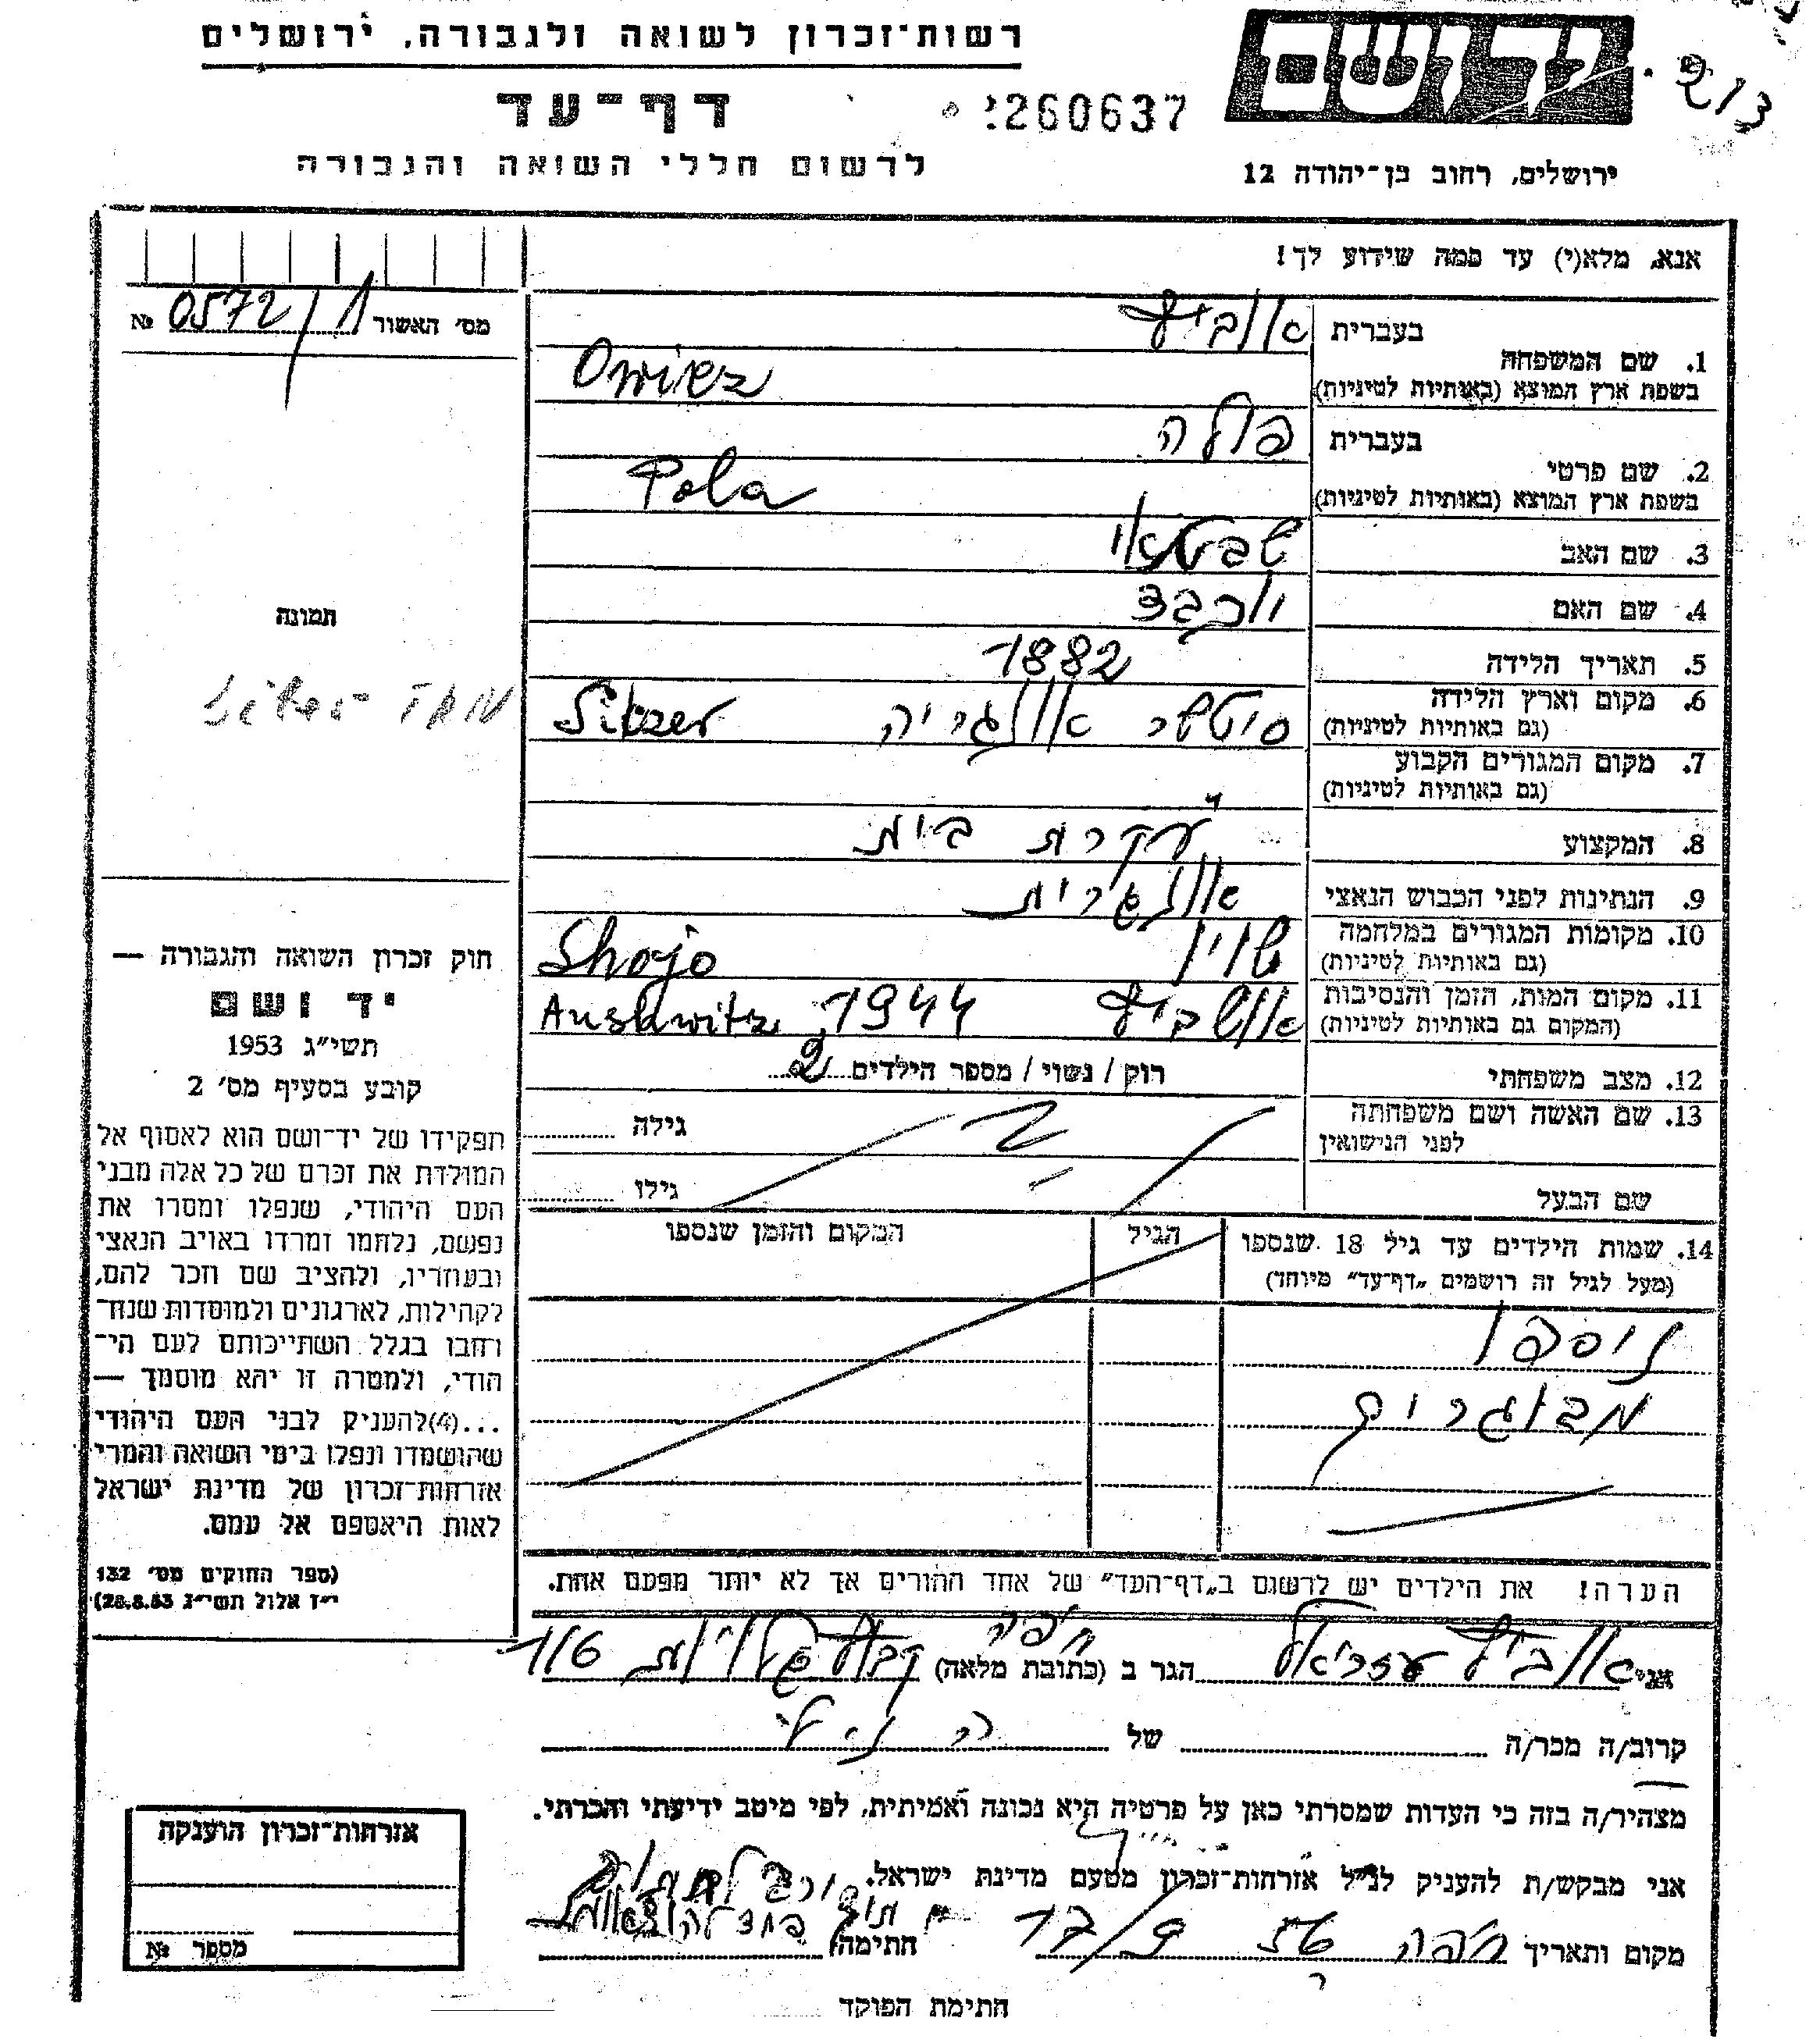 רשות־זכרון לשואה ולגבורה, ירושלים
יד ושם
דף־עד
260637
לרשום חללי השואה והגבורה
ירושלים, רחוב בן־יהודה 12
אנא, מלא(י) עד כמה שידוע לך!
מס' האשור 0572/1 №
1. שם המשפחה בעברית אוביץ
בשפת ארץ המוצא (באותיות לטיניות) Owicz
2. שם פרטי בעברית פולה
בשפת ארץ המוצא (באותיות לטיניות) Pola
3. שם האב שבטאי
4. שם האם יוכבד
תמונה
5. תאריך הלידה 1882
6. מקום וארץ הלידה (גם באותיות לטיניות) סיטשר אונגריה
7. מקום המגורים הקבוע (גם באותיות לטיניות)
8. המקצוע עקרת בית
9. הנתינות לפני הכבוש הנאצי אונגרית
10. מקומות המגורים במלחמה (גם באותיות לטיניות) Shojo
11. מקום המות, הזמן והנסיבות (המקום גם באותיות לטיניות) אושביץ 1944 Aushwitz
12. מצב משפחתי רוק / נשוי / מספר הילדים 2
13. שם האשה ושם משפחתה לפני הנישואין גילה
שם הבעל גילו
14. שמות הילדים עד גיל 18 שנספו הגיל המקום והזמן שנספו
(מעל לגיל זה רושמים "דף־עד" מיוחד)
ניספו
מבוגרים
חוק זכרון השואה והגבורה —
יד ושם
תשי"ג 1953
קובע בסעיף מס' 2
תפקידו של יד־ושם הוא לאסוף אל
המולדת את זכרם של כל אלה מבני
העם היהודי, שנפלו ומסרו את
נפשם, נלחמו ומרדו באויב הנאצי
ובעוזריו, ולהציב שם וזכר להם,
לקהילות, לארגונים ולמוסדות שנח־
רחבו בגלל השתייכותם לעם הי־
הודי, ולמטרה זו יהא מוסמך —
...(4)להעניק לבני העם היהודי
שהושמדו ונפלו בימי השואה והמרי
אזרחות־זכרון של מדינת ישראל
לאות היאספם אל עמם.
(ספר החוקים מס' 132
י"ז אלול תשי"ג 28.8.53)
הערה! את הילדים יש לרשום ב"דף־העד" של אחד ההורים אך לא יותר מפעם אחת.
אני אוביץ עזריאל הגר ב (כתובת מלאה) חיפה קבוץ גלויות 176
קרוב/ה מכר/ה של הנ"ל
מצהיר/ה בזה כי העדות שמסרתי כאן על פרטיה היא נכונה ואמיתית, לפי מיטב ידיעתי והכרתי.
אני מבקש/ת להעניק לנ"ל אזרחות־זכרון מטעם מדינת ישראל.
מקום ותאריך חיפה חתימה
חתימת הפוקד
אזרחות־זכרון הוענקה
מספר №